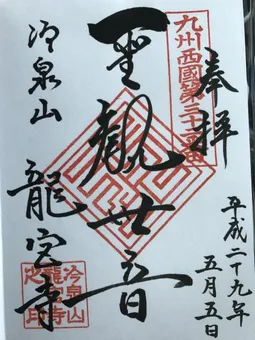 奉拝
平成二十九年
五月五日
九州西國第三十二番
聖観世音
冷泉山
龍宮寺
冷泉山
龍宮寺
之印